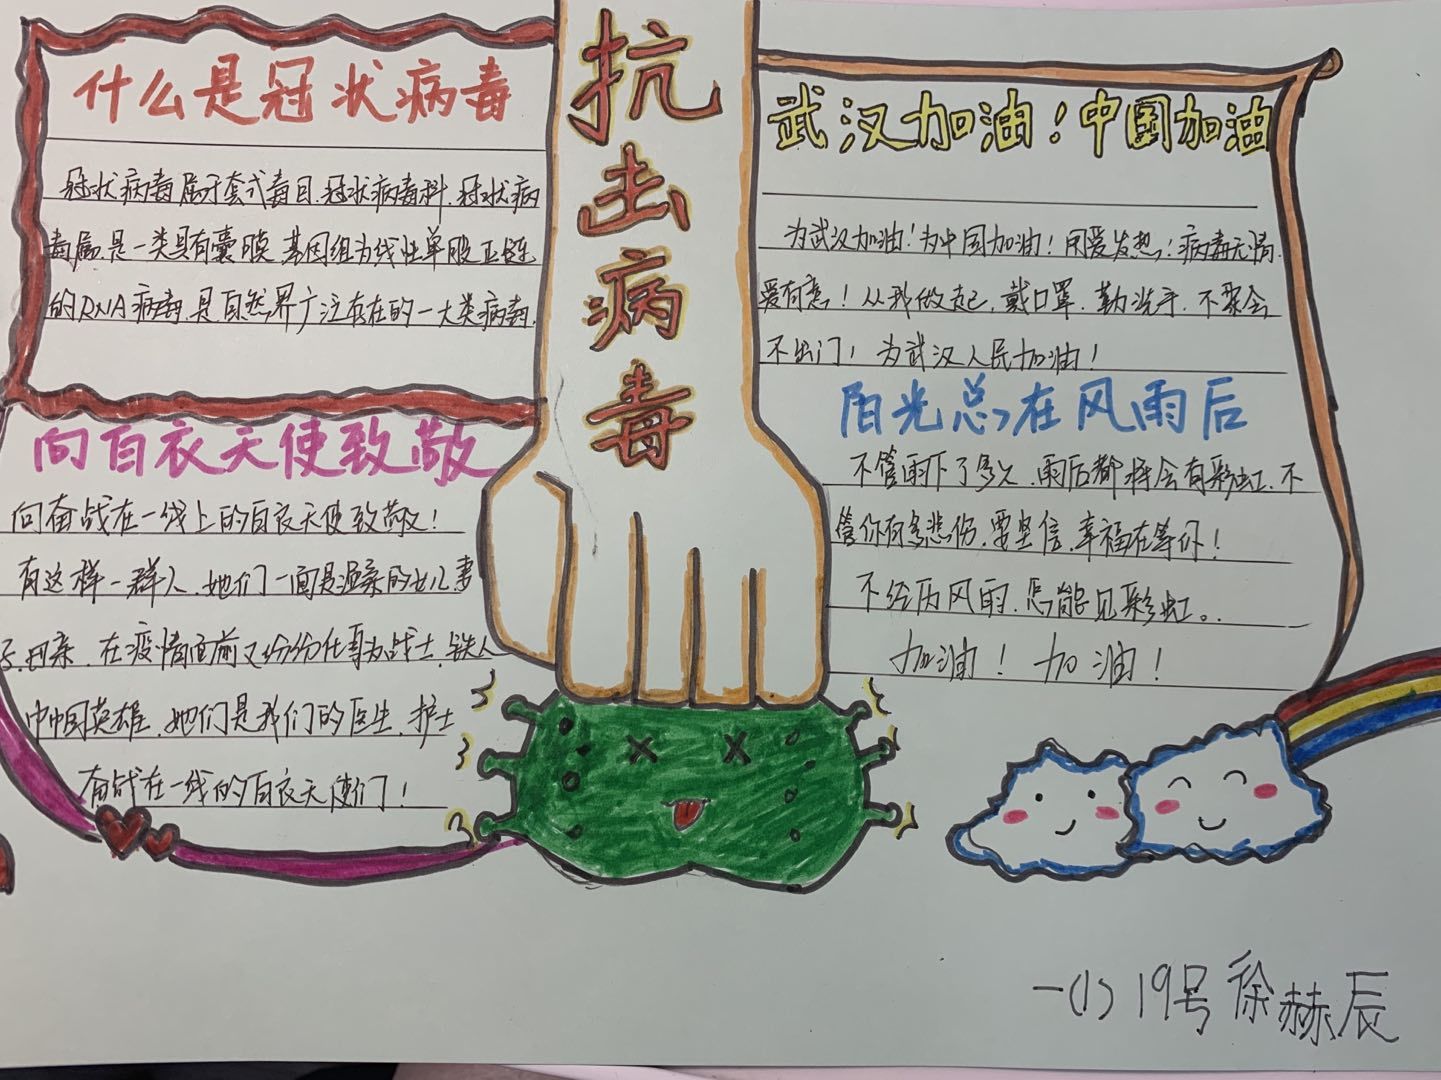 什么是冠状病毒
冠状病毒属于套式毒目.冠状病毒科.冠状病
毒属.是一类具有囊膜.基因组为线性单股正链
的RNA病毒.是自然界广泛存在的一大类病毒.
向白衣天使致敬
向奋战在一线上的白衣天使致敬!
有这样一群人.她们一面是温柔的女儿.妻
子.母亲.在疫情面前又纷纷化身为战士.铁人
中国英雄.她们是我们的医生.护士
奋战在一线的白衣天使们!
抗
击
病
毒
武汉加油!中国加油
为武汉加油!为中国加油!用爱发热!病毒无情.
爱有意!从我做起.戴口罩.勤洗手.不聚会
不出门!为武汉人民加油!
阳光总在风雨后
不管雨下了多久.雨后都将会有彩虹.不
管你有多悲伤.要坚信.幸福在等你!
不经历风雨.怎能见彩虹。
加油! 加油!
一(1) 19号 徐赫辰